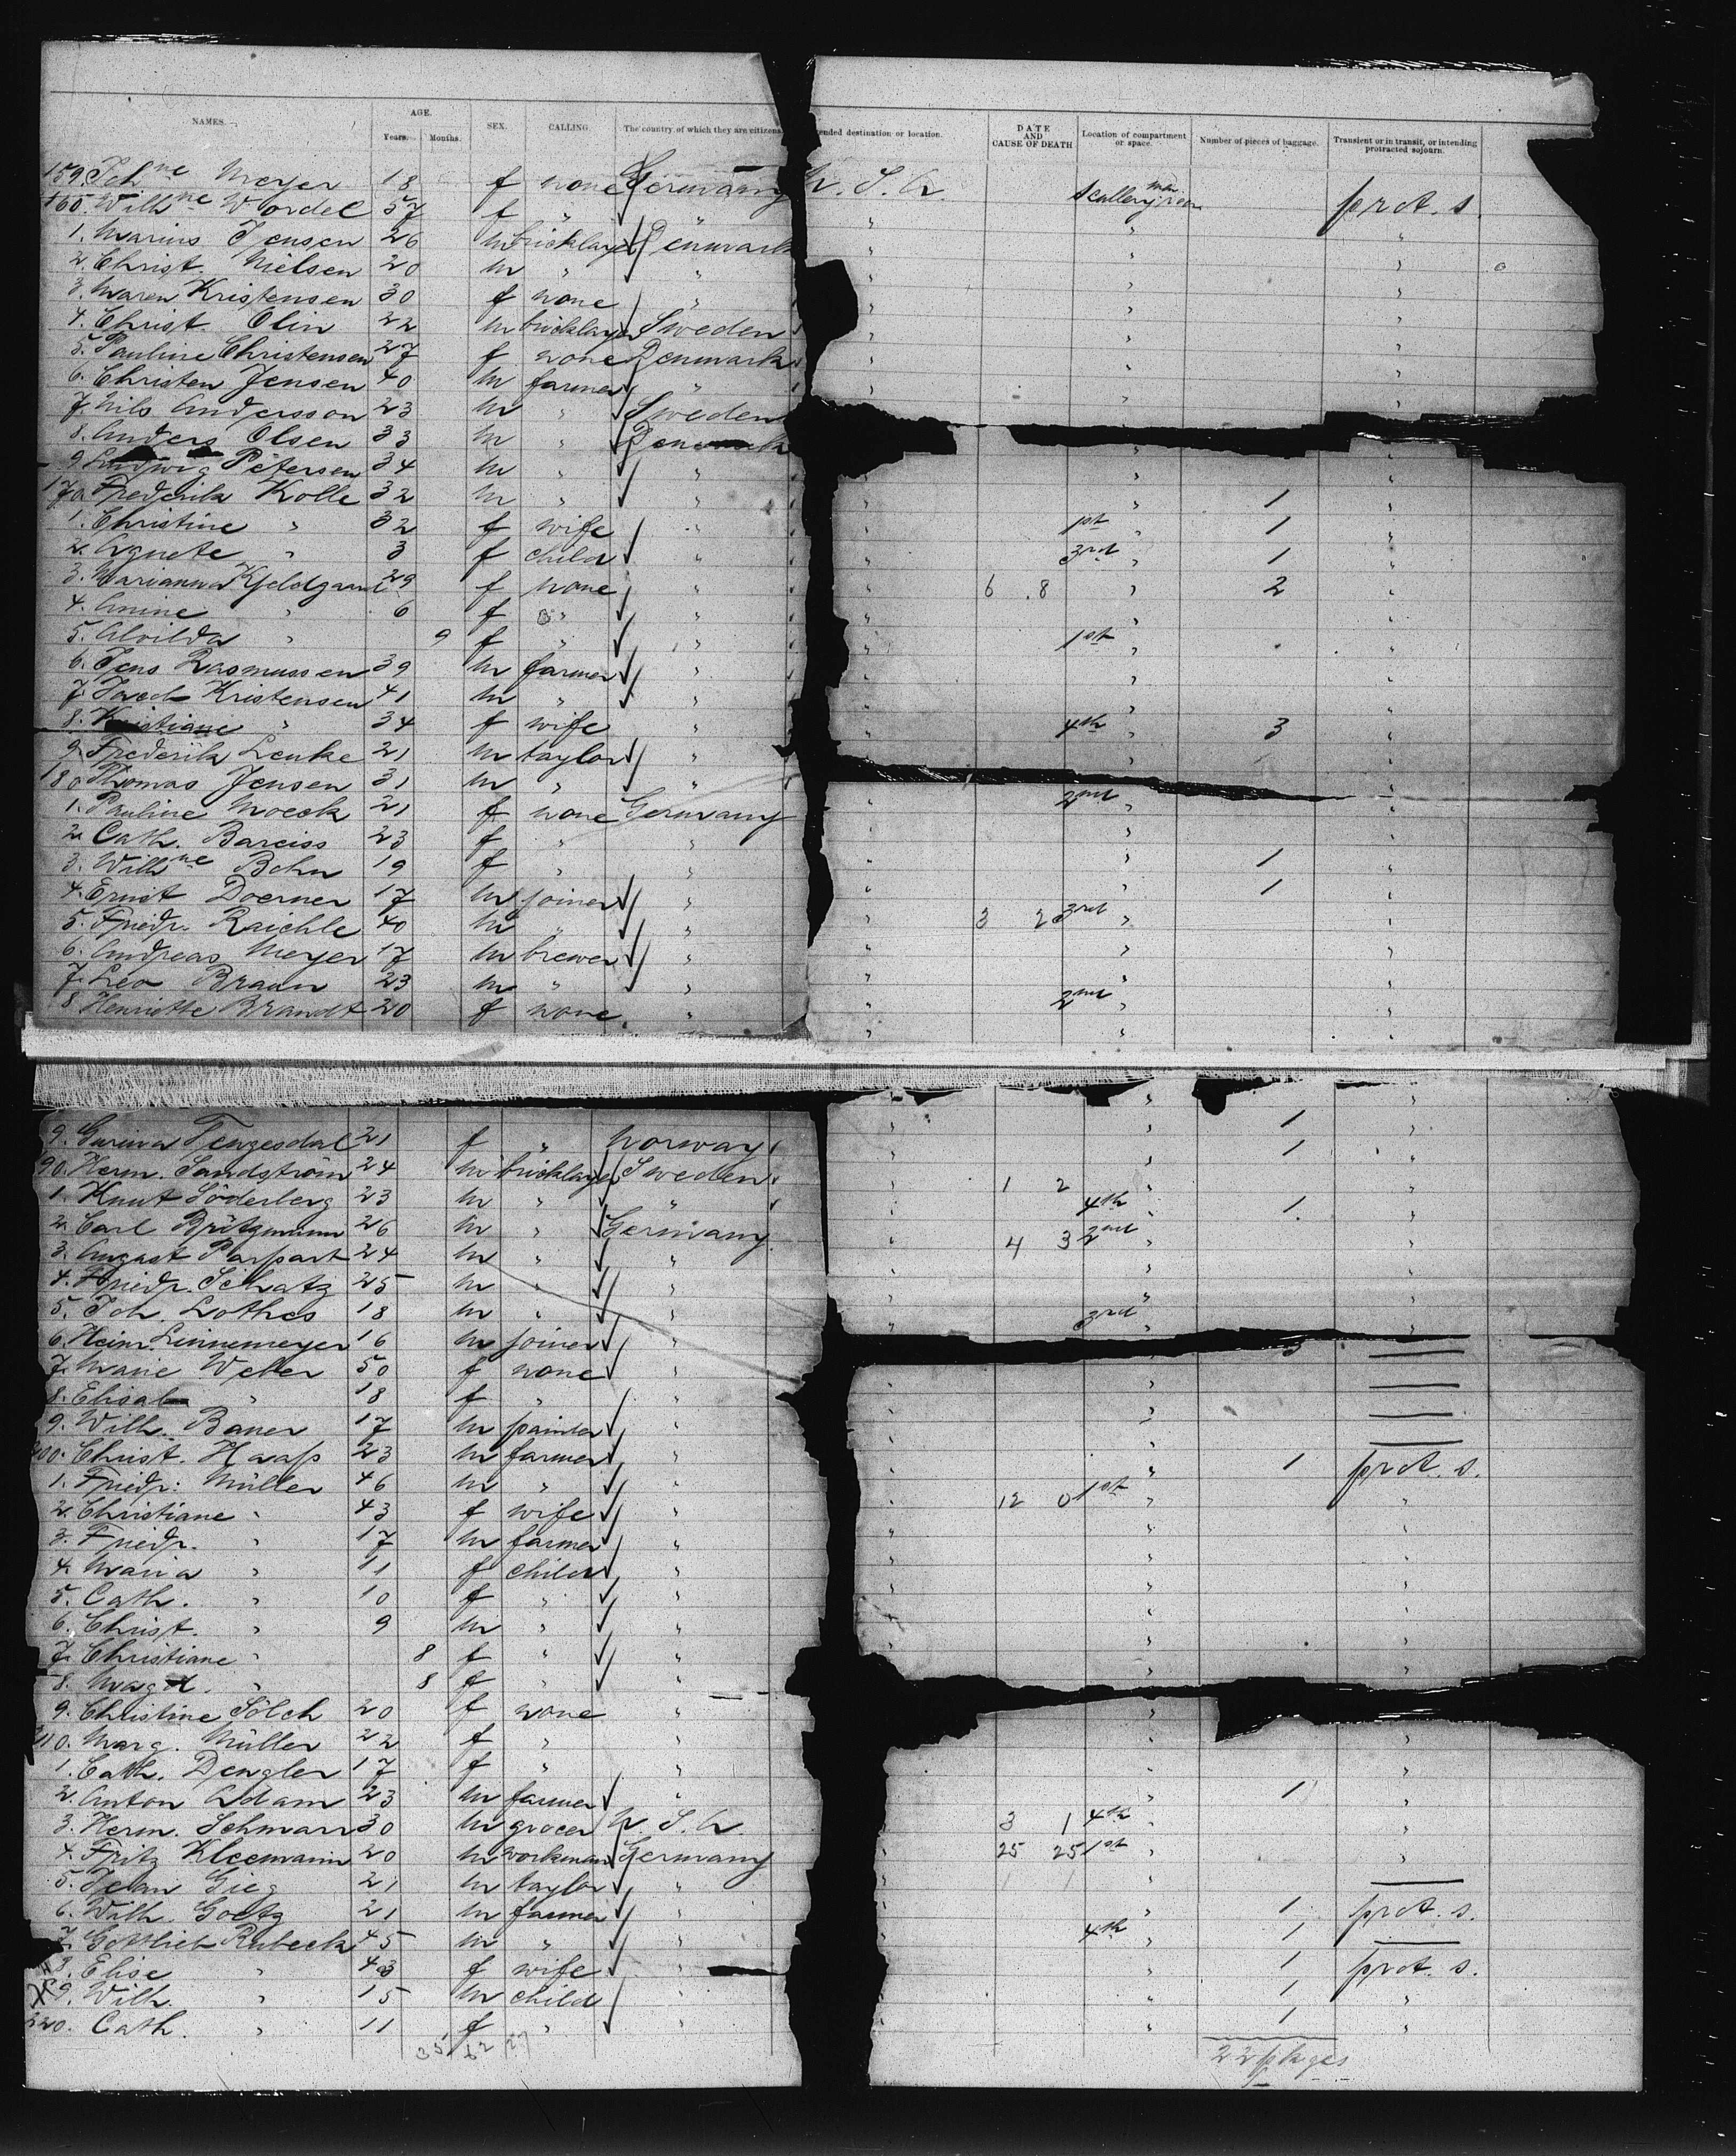 NAMES. AGE. Years. Months. SEX. CALLING. The country of which they are citizens. ended destination or location. DATE AND CAUSE OF DEATH Location of compartment or space. Number of pieces of baggage. Transient or in transit, or intending protracted sojourn.
159. Joh ne Meyer 18 f none Germany U. S. A. prot. s.
160. Wilh ne Wordel 57 f " "
1. Marius Jensen 26 m bricklayer Denmark
2. Christ. Nielsen 20 m " "
3. Maren Kristensen 30 f none "
4. Christ. Olin 22 m bricklayer Sweden
5. Pauline Christensen 27 f none Denmark
6. Christen Jensen 40 m farmer "
7. Nils Andersson 23 m " Sweden
8. Anders Olsen 33 m " Denmark
9. Ludwig Petersen 34 m " "
170 Frederik Kolle 32 m " " 1
1. Christine " 32 f wife " 1st 1
2. Agnete " 3 f child " 3rd 1
3. Marianna Kjeldgaard 29 f none " 6 . 8 2
4. Anine " 6 f " "
5. Alvilda " 9 f " " 1st
6. Jens Rasmussen 39 m farmer "
7. Jacob Kristensen 41 m " "
8. Kristiane " 34 f wife " 4th 3
9. Frederik Lenke 21 m taylor "
180 Thomas Jensen 31 m " "
1. Pauline Moeck 21 f none Germany 2nd
2. Cath. Barciss 23 f " "
3. Wilh ne Bohn 19 f " " 1
4. Ernst Doerner 17 m joiner " 1
5. Friedr. Raichle 40 m " " 3 2 3rd
6. Andreas Meyer 17 m brewer "
7. Leo Braun 23 m " "
8 Henriette Brandt 20 f none " 2nd
9. Gurina 21 f " Norway 1
90. Herm. Sandström 24 m bricklayer Sweden 1
1. Knut Söderberg 23 m " " 1 2
2. Carl 26 m " Germany 4th 1
3. August Parpart 24 m " " 4 3 2nd
4. Friedr. Schatz 25 m " "
5. Joh. Lothes 18 m " " 3rd
6. Heinr. Linnemeyer 16 m joiner "
7. Marie Weber 50 f none " 3
8. Elisab " 18 f " "
9. Wilh. Bauer 17 m painter "
200. Christ. Haaß 23 m farmer " 1 prot. s.
1. Friedr. Müller 46 m " " 12 0 1st
2. Christiane " 43 f wife "
3. Friedr. " 17 m farmer "
4. Maria " 11 f child "
5. Cath. " 10 f " "
6. Christ. " 9 m " "
7. Christiane " 8 f " "
8. Magd. " 8 f " "
9. Christine Sölch 20 f none "
210. Marg. Müller 22 f " "
1. Cath. Dengler 17 f " "
2. Anton Adam 23 m farmer " 1
3. Herm. Schmarr 30 m grocer U. S. A. 3 1 4th
4. Fritz Kleemann 20 m workman Germany 25 25 1st
5. Jean Gieg 21 m taylor "
6. Wilh. Goetz 21 m farmer " 1 prot. s.
7. Gottlieb Rubeck 45 m " " 4th 1
8. Elise " 43 f wife " 1 prot. s.
9. Wilh. " 15 m child " 1
220. Cath. " 11 f " " 1
22 pkges